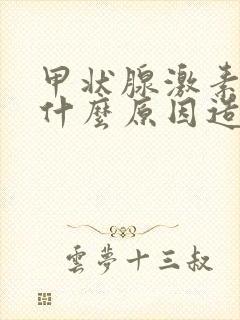 甲状腺激素
什麼原因造
雲夢十三叔